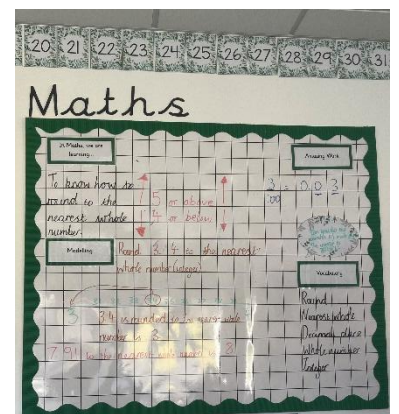 20 21 22 23 24 25 26 27 28 29 30 31
Maths
In Maths, we are
learning...
To know how to
round to the
nearest whole
number.
5 or above
4 or below
Amazing Work
3 = 0.03
100
Modelling
Round 3.4 to the nearest
whole number (integer)
3.4 is rounded to the nearest whole
number is 3
7.91 to the nearest whole number is 8!
Vocabulary
Round
Nearest whole
Decimal place
Whole number
Integer